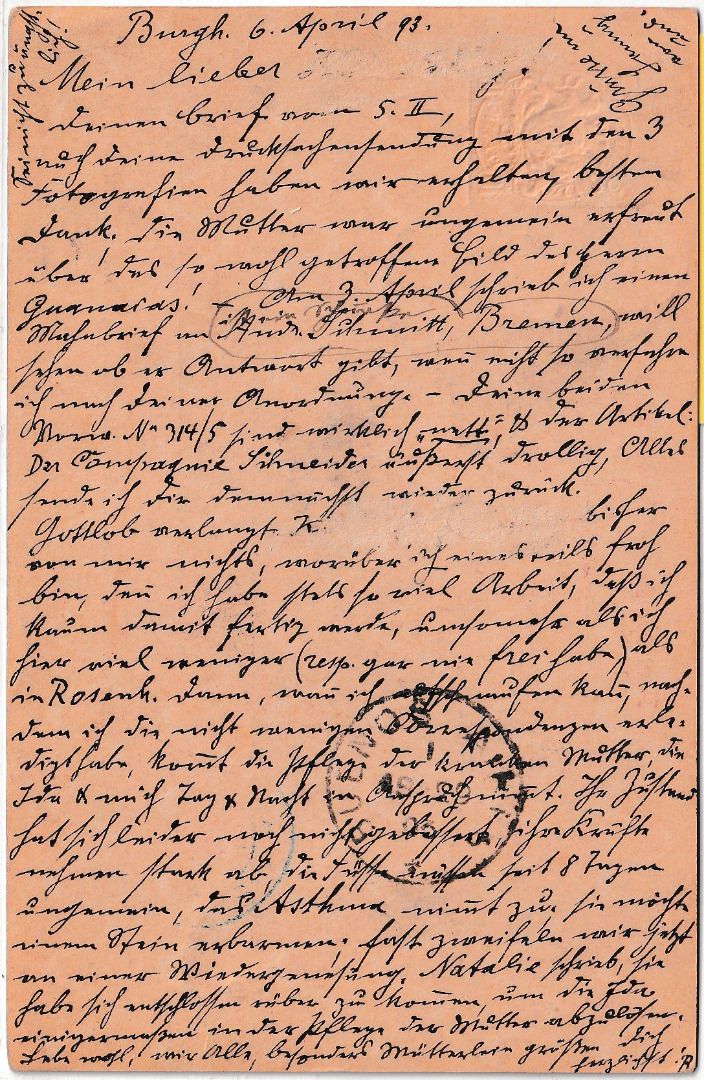 Burgh. 6. April 93.
Mein lieber
Deinen Brief vom 5. II,
auch deine Drucksachensendung mit den 3
Fotografien haben wir erhalten, besten
Dank! Die Mutter war ungemein erfreut
über das so wohl getroffene Bild des Herrn
Guanacas! – Am 3 April schrieb ich einen
ist ein
Mahnbrief an Schmitt, Bremen, will
sehen ob er Antwort gibt, wenn nicht so verfahre
ich nach deiner Anordnung. – Deine beiden
Vorw. No 314/5 sind wirklich „nett“, & der Artikel:
Der Compagnie Schneider äußerst drollig, Alles
sende ich dir demnächst wieder zurück.
Gottlob verlangt K. bisher
von mir nichts, worüber ich einesteils froh
bin, denn ich habe stets so viel Arbeit, daß ich
kaum damit fertig werde, umsomehr als ich
hier viel weniger (resp. gar nie frei habe) als
in Rosenh. Dann, wann ich aufen kann, nach-
dem ich die nicht wenigen Correspondenzen erle-
digt habe, kommt die Pflege der kranken Mutter, die
Ida & mich Tag & Nacht in Anspruch nimt. Ihr Zustand
hat sich leider noch nicht gebessert, ihre Kräfte
nehmen stark ab, die Füße seit 8 Tagen
ungemein, das Asthma nimt zu. sie möchte
einem Stein erbarmen; fast zweifeln wir jetzt
an einer Wiedergenesung. Natalie schrieb, sie
habe sich entschlossen rüber zu kommen, um die Ida
einigermaßen in der Pflege der Mutter abzulösen.
Lebe wohl, wir Alle, besonders Mütterlein grüßen dich
herzlichst! R
Sei nicht zu ängst-
lich!
BUENOS AIRES